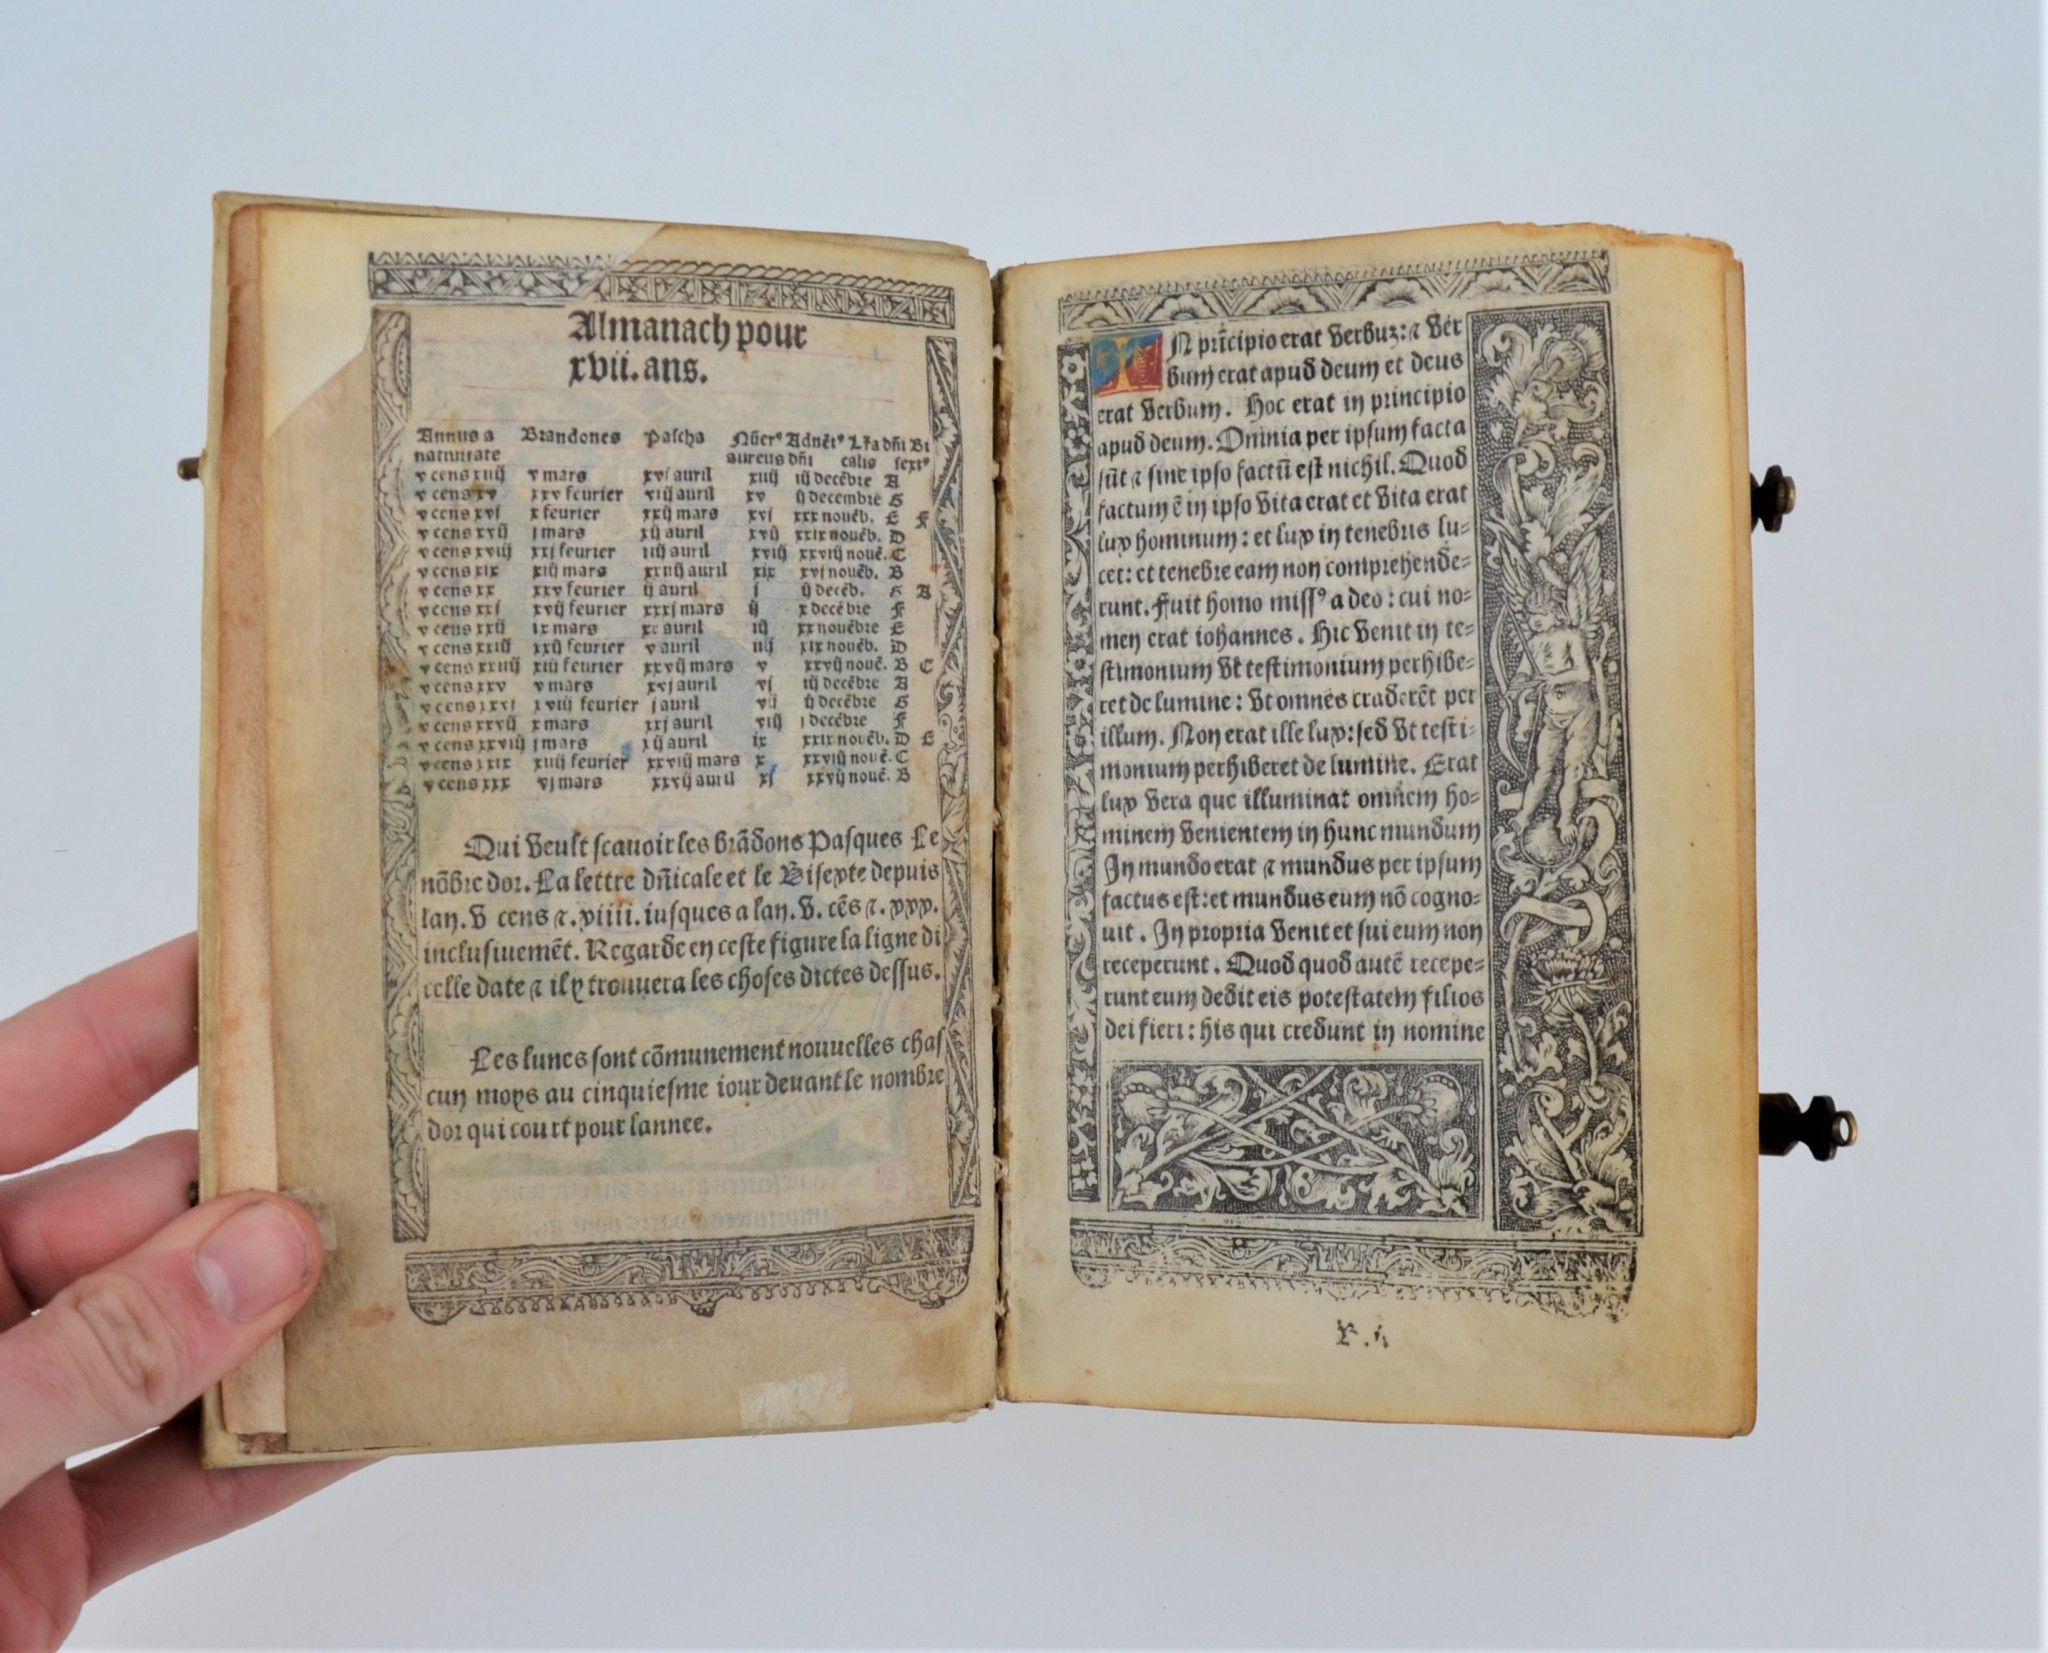 Almanach pour
xvii. ans.
Annus a Brandones Pascha Nũer⁹ Adnẽt⁹ Lr̃a dñi Bi
natiuitate aureus dñi calis sext⁹
v cens xiiij v mars xvi auril xiiij iij decẽbre A
v cens xv xxv feurier viij auril xv ij decembre G
v cens xvj x feurier xxiij mars xvj xxx nouẽb. E F
v cens xvij j mars xij auril xvij xxix nouẽb. D
v cens xviij xxj feurier iiij auril xviij xxviij nouẽ. C
v cens xix xiij mars xxiiij auril xix xvj nouẽb. B
v cens xx xxv feurier ij auril j ij decẽb. G A
v cens xxj xvij feurier xxxj mars ij x decẽbre F
v cens xxij ix mars xx auril iij xx nouẽbre E
v cens xxiij xxij feurier v auril iiij xix nouẽb. D
v cens xxiiij xiij feurier xxvij mars v xxvij nouẽ. B C
v cens xxv v mars xvj auril vj iij decẽbre A
v cens xxvj xviij feurier j auril vij ij decẽbre G
v cens xxvij x mars xxj auril viij j decẽbre F
v cens xxviij j mars xij auril ix xxix nouẽb. D E
v cens xxix xiiij feurier xxviij mars x xxviij nouẽ. C
v cens xxx vj mars xxvij auril xj xxvij nouẽ. B
Qui veult scauoir les brãdons Pasques Le
nõbre dor. La lettre dñicale et le Bisexte depuis
lan. v cens ⁊. xiiii. iusques a lan. v. cẽs ⁊. xxx.
inclusiuemẽt. Regarde en ceste figure la ligne di
celle date ⁊ il y trouuera les choses dictes dessus.
Les lunes sont cõmunement nouuelles chas
cun moys au cinquiesme iour deuant le nombre
dor qui court pour lannee.
IN prĩcipio erat verbuz: ⁊ ver
bum erat apud deum et deus
erat verbum. Hoc erat in principio
apud deum. Omnia per ipsum facta
sũt ⁊ sine ipso factũ est nichil. Quod
factum ẽ in ipso vita erat et vita erat
lux hominum: et lux in tenebris lu-
cet: et tenebre eam non comprehende-
runt. Fuit homo miss⁹ a deo: cui no-
men erat iohannes. Hic venit in te-
stimonium vt testimonium perhibe-
ret de lumine: vt omnes craderẽt per
illum. Non erat ille lux: sed vt testi-
monium perhiberet de lumine. Erat
lux vera que illuminat omnem ho-
minem venientem in hunc mundum
In mundo erat ⁊ mundus per ipsum
factus est: et mundus eum nõ cogno-
uit. In propria venit et sui eum non
receperunt. Quod quod autẽ recepe-
runt eum dedit eis potestatem filios
dei fieri: his qui credunt in nomine